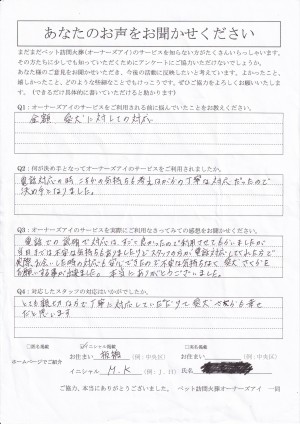 あなたのお声をお聞かせください
まだまだペット訪問火葬(オーナーズアイ)のサービスを知らない方がたくさんいらっしゃいます。
その方たちに少しでも知っていただくためにアンケートにご協力いただけないでしょうか。
あなた様のご意見をお聞かせいただき、今後の活動に反映したいと考えています。よかったこと、
嬉しかったこと、どのような些細なことでもけっこうです。ぜひご協力をよろしくお願いいたしま
す。(できるだけ具体的に書いていただけると助かります)
Q1:オーナーズアイのサービスをご利用される前に悩んでいたことをお教えください。
金額 愛犬に対しての対応
Q2:何が決め手となってオーナーズアイのサービスをご利用されましたか。
電話対応の時 こちらの気持ちも考え
丁寧な対応だったので
決め手となりました。
Q3:オーナーズアイのサービスを実際にご利用なさってみての感想をお聞かせください。
電話での説明で対応は、すごく良かったので利用させてもらいましたが
当日までは不安な気持ちもありましたが
スタッフの方が電話対応してくれた方で
実際お会いした時の対応も安心できたので不安な気持ちはなく 愛犬 さくらを
お願いする事が出来ました。本当にありがとうございました。
Q4:対応したスタッフの対応はいかがでしたか。
とても親切な方で丁寧に対応していただけて愛犬
も幸せ
だと思います
□実名掲載 ☑イニシャル掲載 □匿名掲載
ホームページでご紹介
お住まい 板橋 (例:中央区) お住まい (例:中央区)
イニシャル M.K (例:J.H) 氏名
ご協力、本当にありがとうございました。 ペット訪問火葬オーナーズアイ 一同